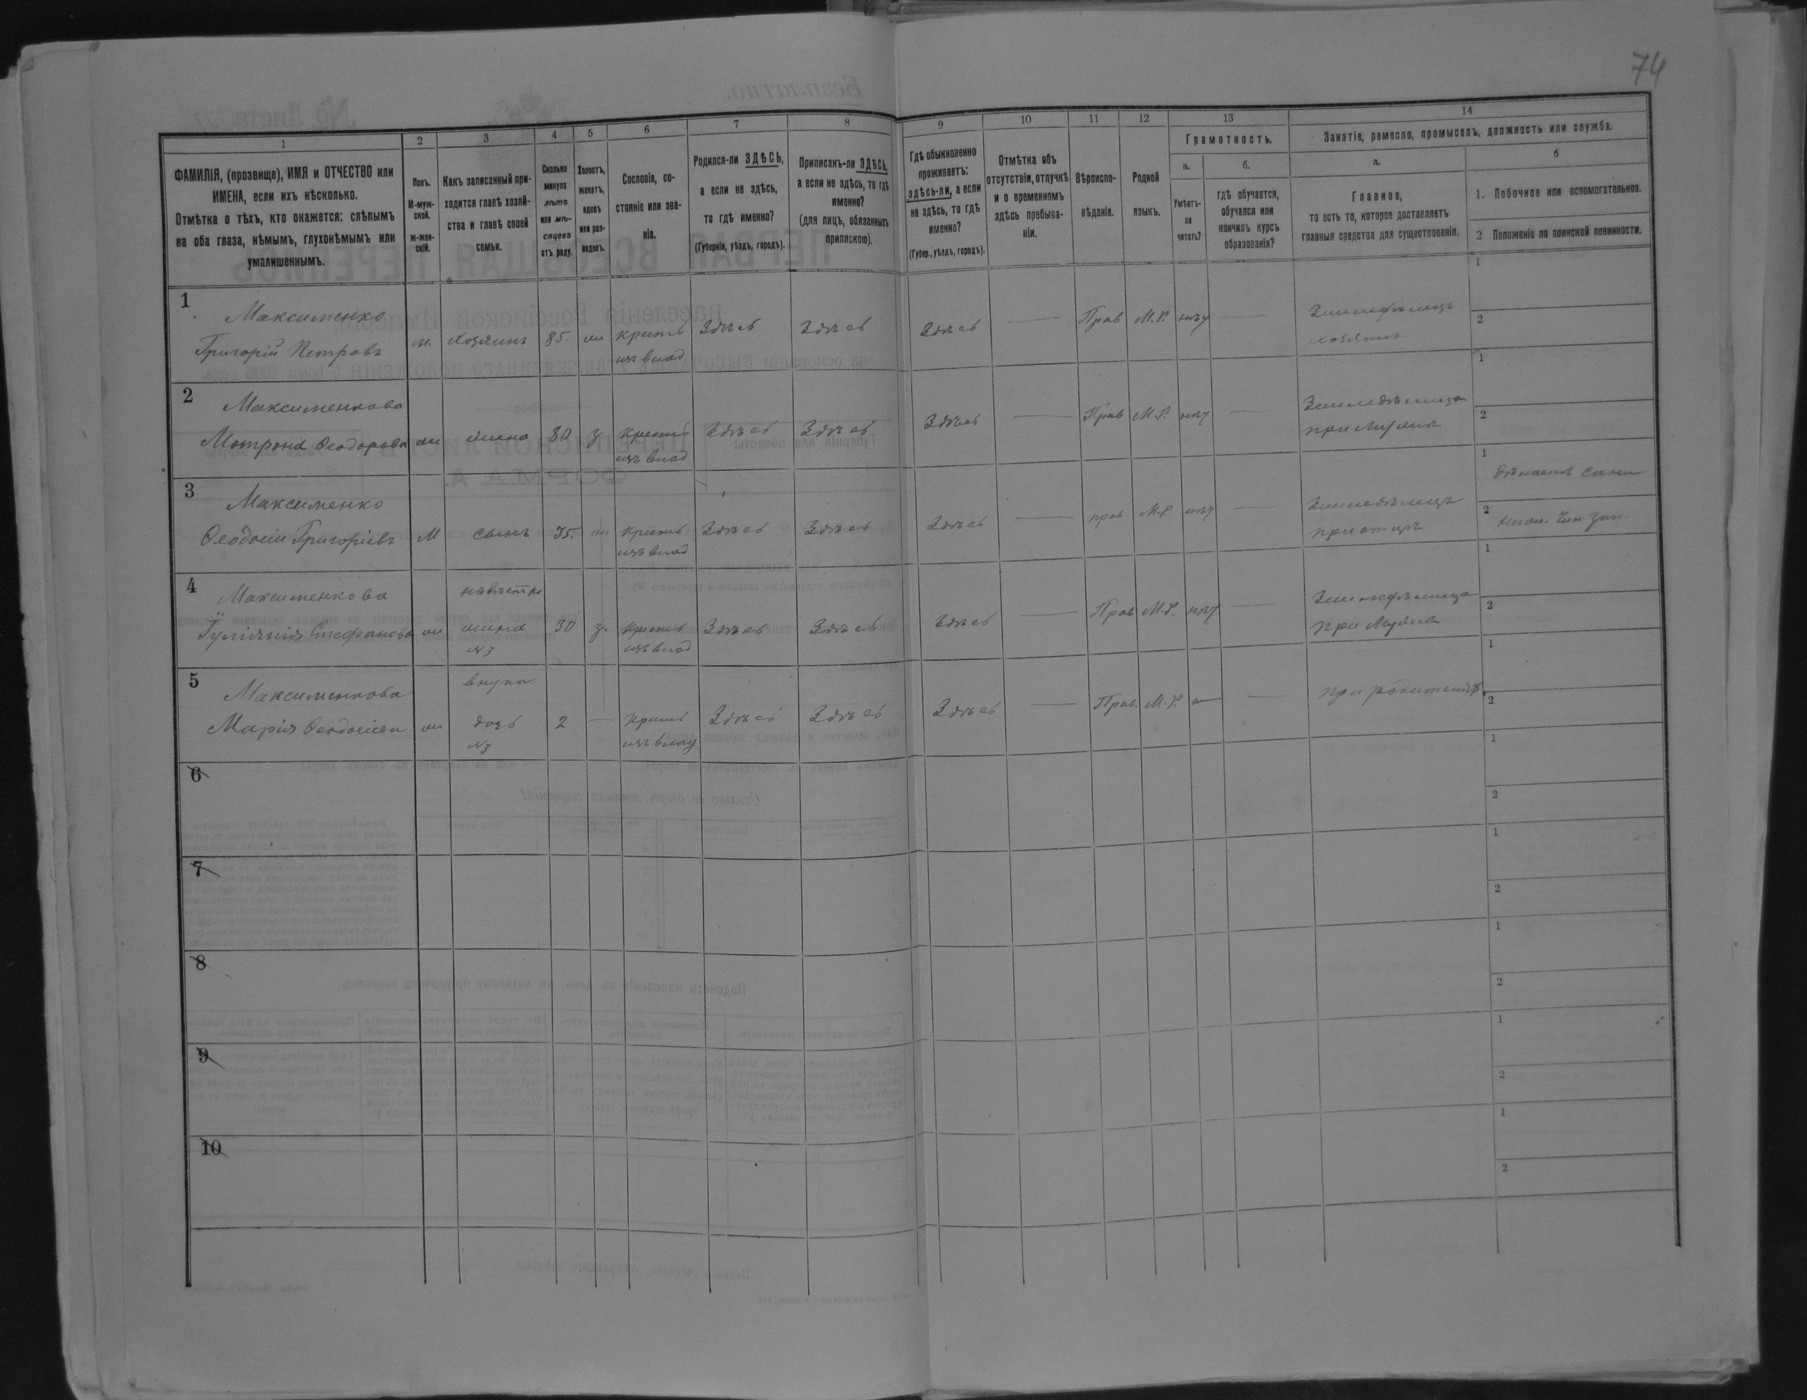 74
1
2
3
4
5
6
7
8
9
10
11
12
13
14
ФАМИЛІЯ, (прозвище), ИМЯ и ОТЧЕСТВО или
ИМЕНА, если ихъ нѣсколько.
Отмѣтка о тѣхъ, кто окажется: слѣпымъ
на оба глаза, нѣмымъ, глухонѣмымъ или
умалишеннымъ.
Полъ.
М-муж-
ской.
ж-жен-
скій.
Какъ записанный при-
ходится главѣ хозяй-
ства и главѣ своей
семьи.
Сколько
минуло
лѣтъ
или мѣ-
сяцевъ
отъ роду.
Холостъ,
женатъ,
вдовъ
или раз-
веденъ.
Сословіе, со-
стояніе или зва-
ніе.
Родился-ли ЗДѢСЬ,
а если не здѣсь,
то гдѣ именно?
(Губернія, уѣздъ, городъ).
Приписанъ-ли ЗДѢСЬ,
а если не здѣсь, то гдѣ
именно?
(для лицъ, обязанныхъ
припискою).
Гдѣ обыкновенно
проживаетъ:
здѣсь-ли, а если
не здѣсь, то гдѣ
именно?
(Губер., уѣздъ, городъ).
Отмѣтка объ
отсутствіи, отлучкѣ
и о временномъ
здѣсь пребыва-
ніи.
Вѣроиспо-
вѣданіе.
Родной
языкъ.
Грамотность.
а.
Умѣетъ-
ли
читать?
б.
Гдѣ обучается,
обучался или
кончилъ курсъ
образованія?
Занятіе, ремесло, промыселъ, должность или служба.
а.
Главное,
то есть то, которое доставляетъ
главныя средства для существованія.
б
1. Побочное или вспомогательное.
2 Положеніе по воинской повинности.
1
Максименко
Григорій Петровъ
м. хозяинъ 85. ж крест. Здѣсь Здѣсь Здѣсь — Прав М.Р. нѣт — Земледѣлецъ
изъ влад хозяинъ
1
2
2
Максименкова
Матрона Феодорова ж жена 80 з. крест. Здѣсь Здѣсь Здѣсь — Прав М.Р. нѣт — Земледѣлица
изъ влад при мужѣ
1
2
3
Максименко
Феодосій Григоріевъ М сынъ 35. ж крест. Здѣсь Здѣсь Здѣсь — прав М.Р. нѣт — Земледѣлецъ
изъ влад при отцѣ
1 дѣлаетъ сани
2
4
Максименкова
невѣстка
Стефанова ж жена 30 з. крест. Здѣсь Здѣсь Здѣсь — Прав М.Р. нѣт — Земледѣлица
№3 изъ влад при мужѣ
1
2
5
Максименкова
внука
Марія Феодосіева ж дочь 2 — крест. Здѣсь Здѣсь Здѣсь — Прав. М.Р — — при родителяхъ
№3 изъ влад
1
2
6
1
2
7
1
2
8
1
2
9
1
2
10
1
2